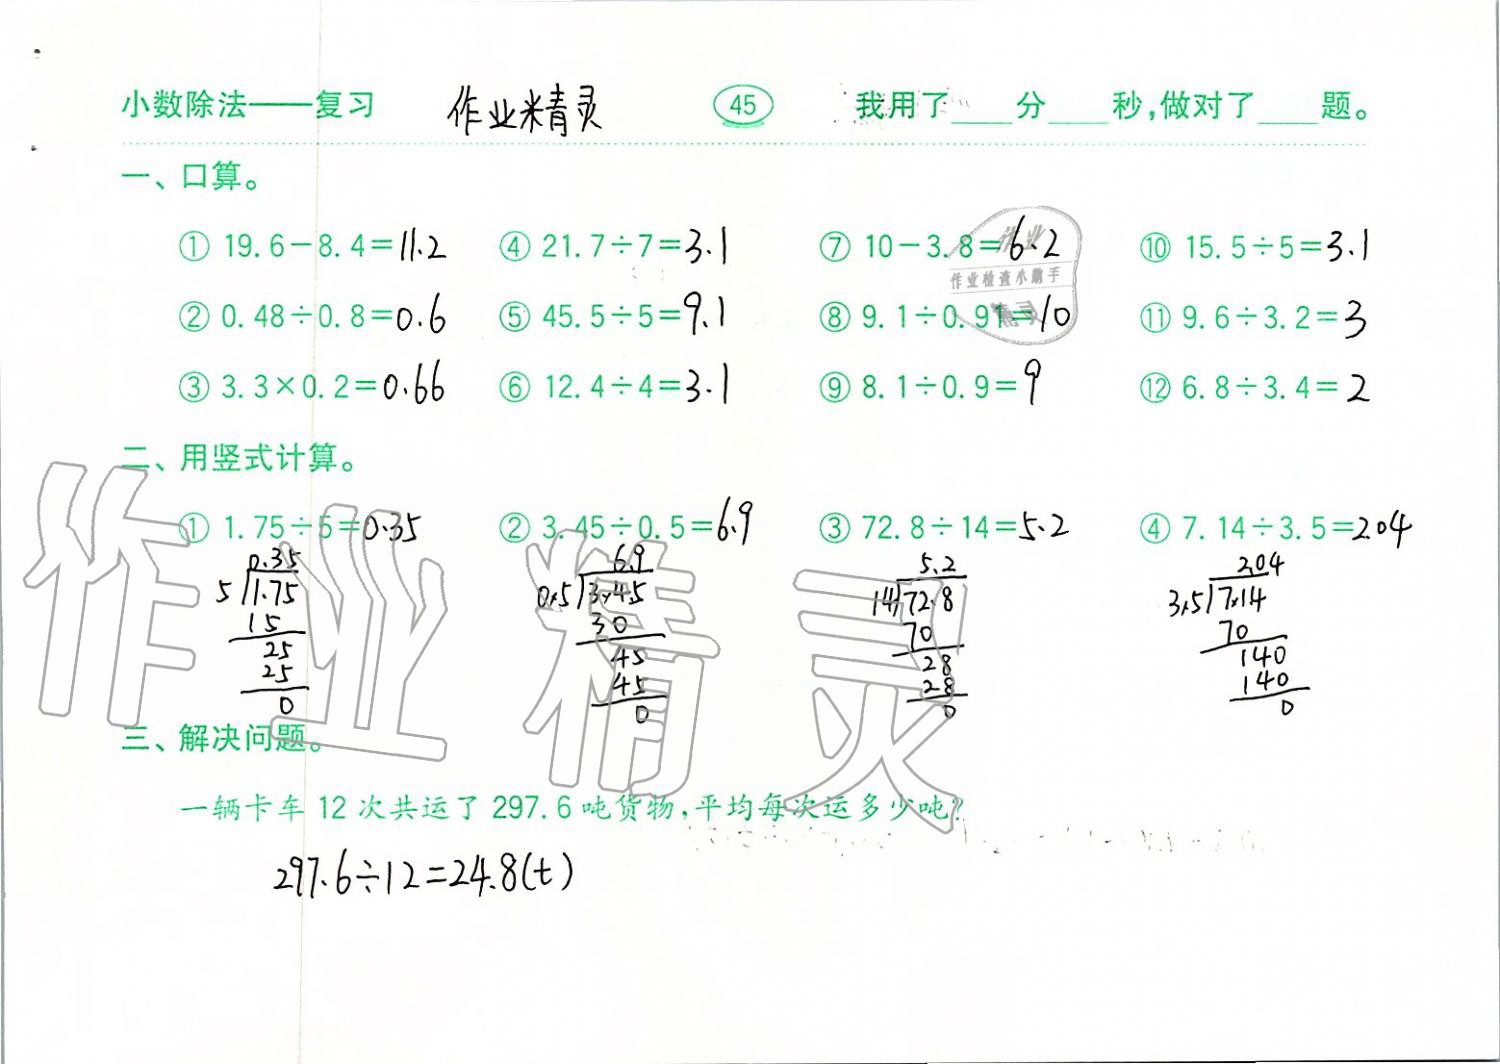 小数除法——复习 作业精灵 45 我用了____分____秒,做对了____题。
一、口算。
① 19.6-8.4=11.2 ④ 21.7÷7=3.1 ⑦ 10-3.8=6.2 ⑩ 15.5÷5=3.1
作业检查小助手
② 0.48÷0.8=0.6 ⑤ 45.5÷5=9.1 ⑧ 9.1÷0.91=10 ⑪ 9.6÷3.2=3
③ 3.3×0.2=0.66 ⑥ 12.4÷4=3.1 ⑨ 8.1÷0.9=9 ⑫ 6.8÷3.4=2
二、用竖式计算。
① 1.75÷5=0.35 ② 3.45÷0.5=6.9 ③ 72.8÷14=5.2 ④ 7.14÷3.5=2.04
0.35 6.9 5.2 2.04
5 1.75 0.5 3.45 14 72.8 3.5 7.14
15 30 70 70
25 45 28 140
25 45 28 140
0 0 0 0
作业精灵
三、解决问题。
一辆卡车12次共运了297.6吨货物,平均每次运多少吨?
297.6÷12=24.8(t)